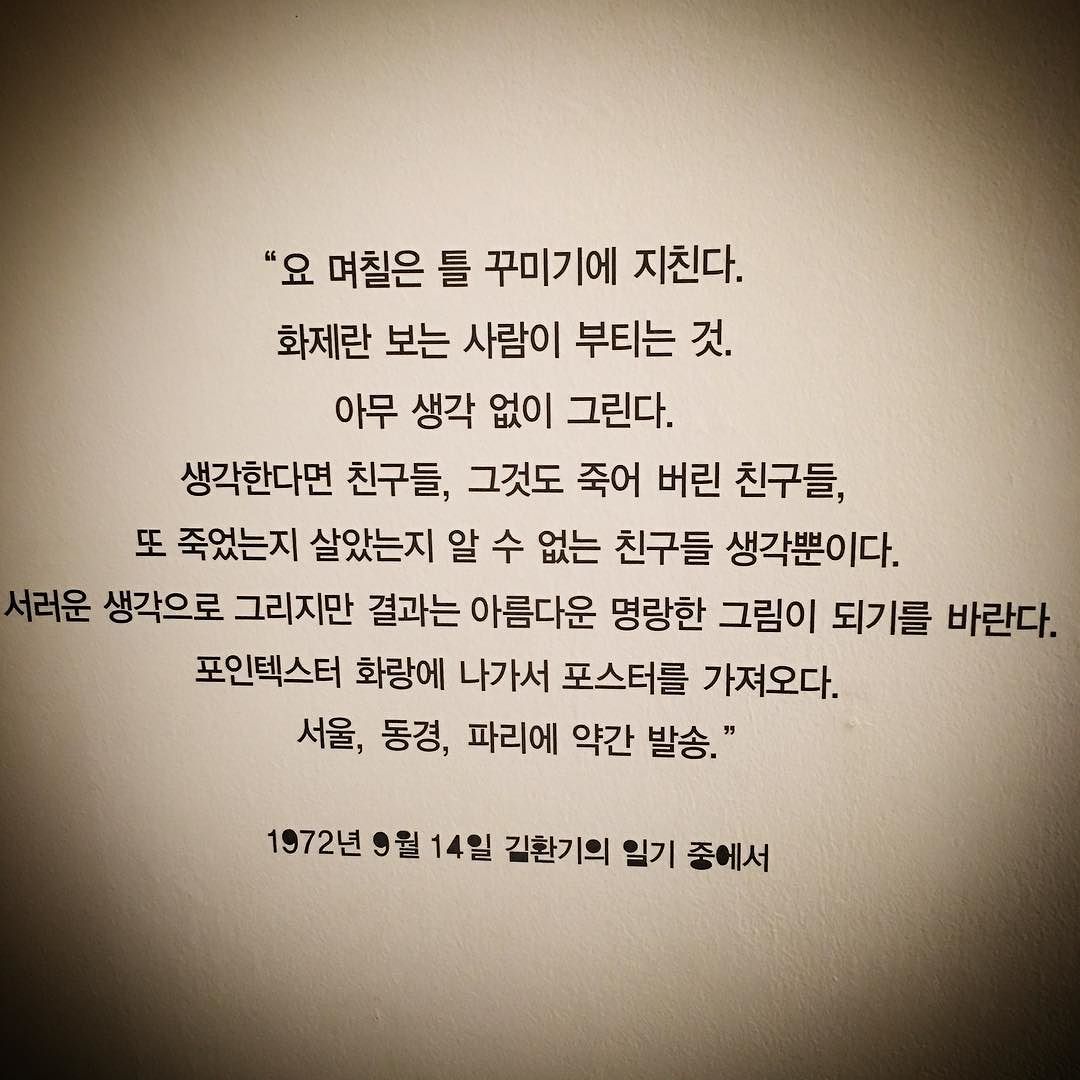 “요 며칠은 틀 꾸미기에 지친다.
화제란 보는 사람이 부티는 것.
아무 생각 없이 그린다.
생각한다면 친구들, 그것도 죽어 버린 친구들,
또 죽었는지 살았는지 알 수 없는 친구들 생각뿐이다.
서러운 생각으로 그리지만 결과는 아름다운 명랑한 그림이 되기를 바란다.
포인텍스터 화랑에 나가서 포스터를 가져오다.
서울, 동경, 파리에 약간 발송.”
1972년 9월 14일 김환기의 일기 중에서